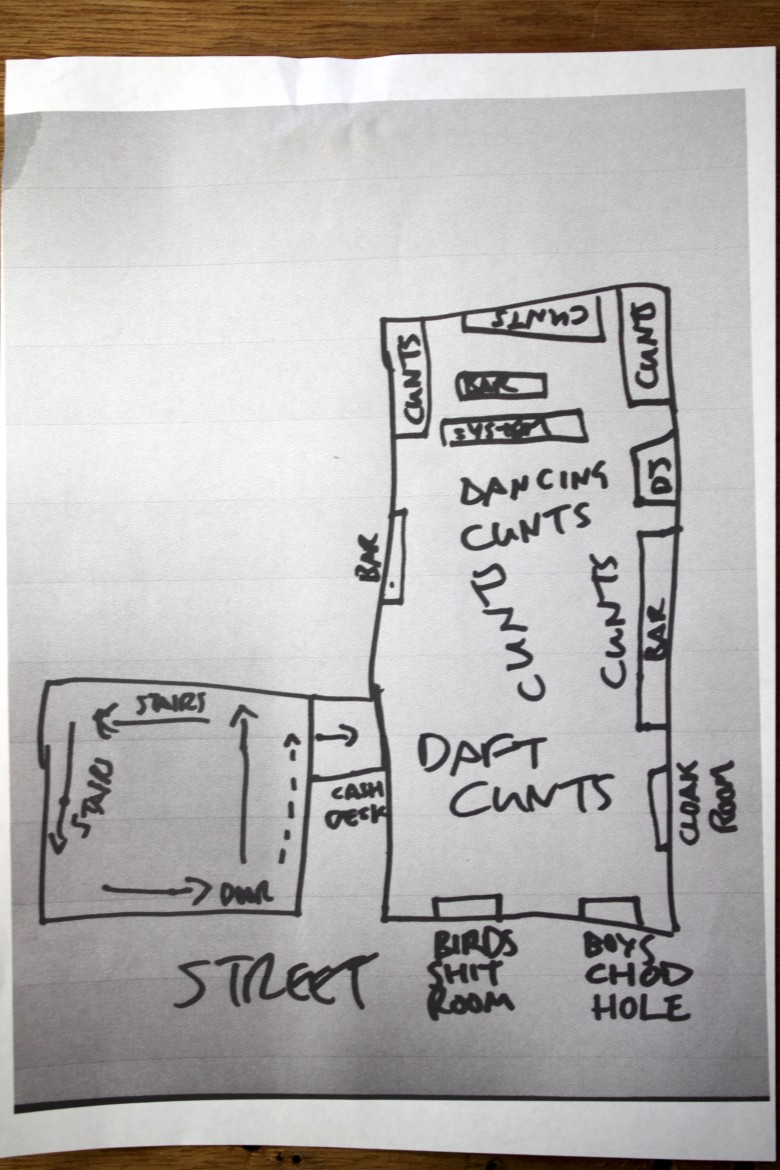 CUNTS
CUNTS
CUNTS
BAR
SYSTEM
DJ
DANCING
CUNTS
BAR
CUNTS
CUNTS
BAR
STAIRS
STAIRS
DOOR
CASH
DESK
DAFT
CUNTS
CLOAK
ROOM
STREET
BIRDS
SHIT
ROOM
BOYS
CHOD
HOLE